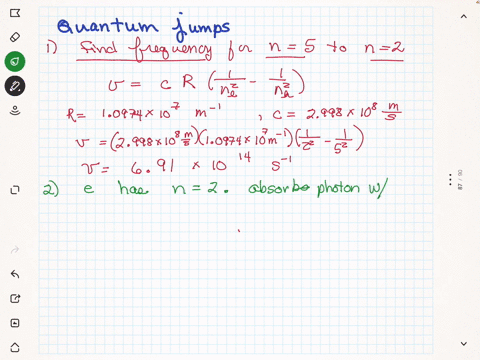 Quantum jumps
1) Find frequency for n = 5 to n = 2
ν = c R (1/nℓ² - 1/nh²)
R = 1.0974 × 10⁷ m⁻¹ , c = 2.998 × 10⁸ m/s
ν = (2.998 × 10⁸ m/s)(1.0974 × 10⁷ m⁻¹)(1/2² - 1/5²)
ν = 6.91 × 10¹⁴ s⁻¹
2) e has n = 2. absorbs photon w/
87 / 90